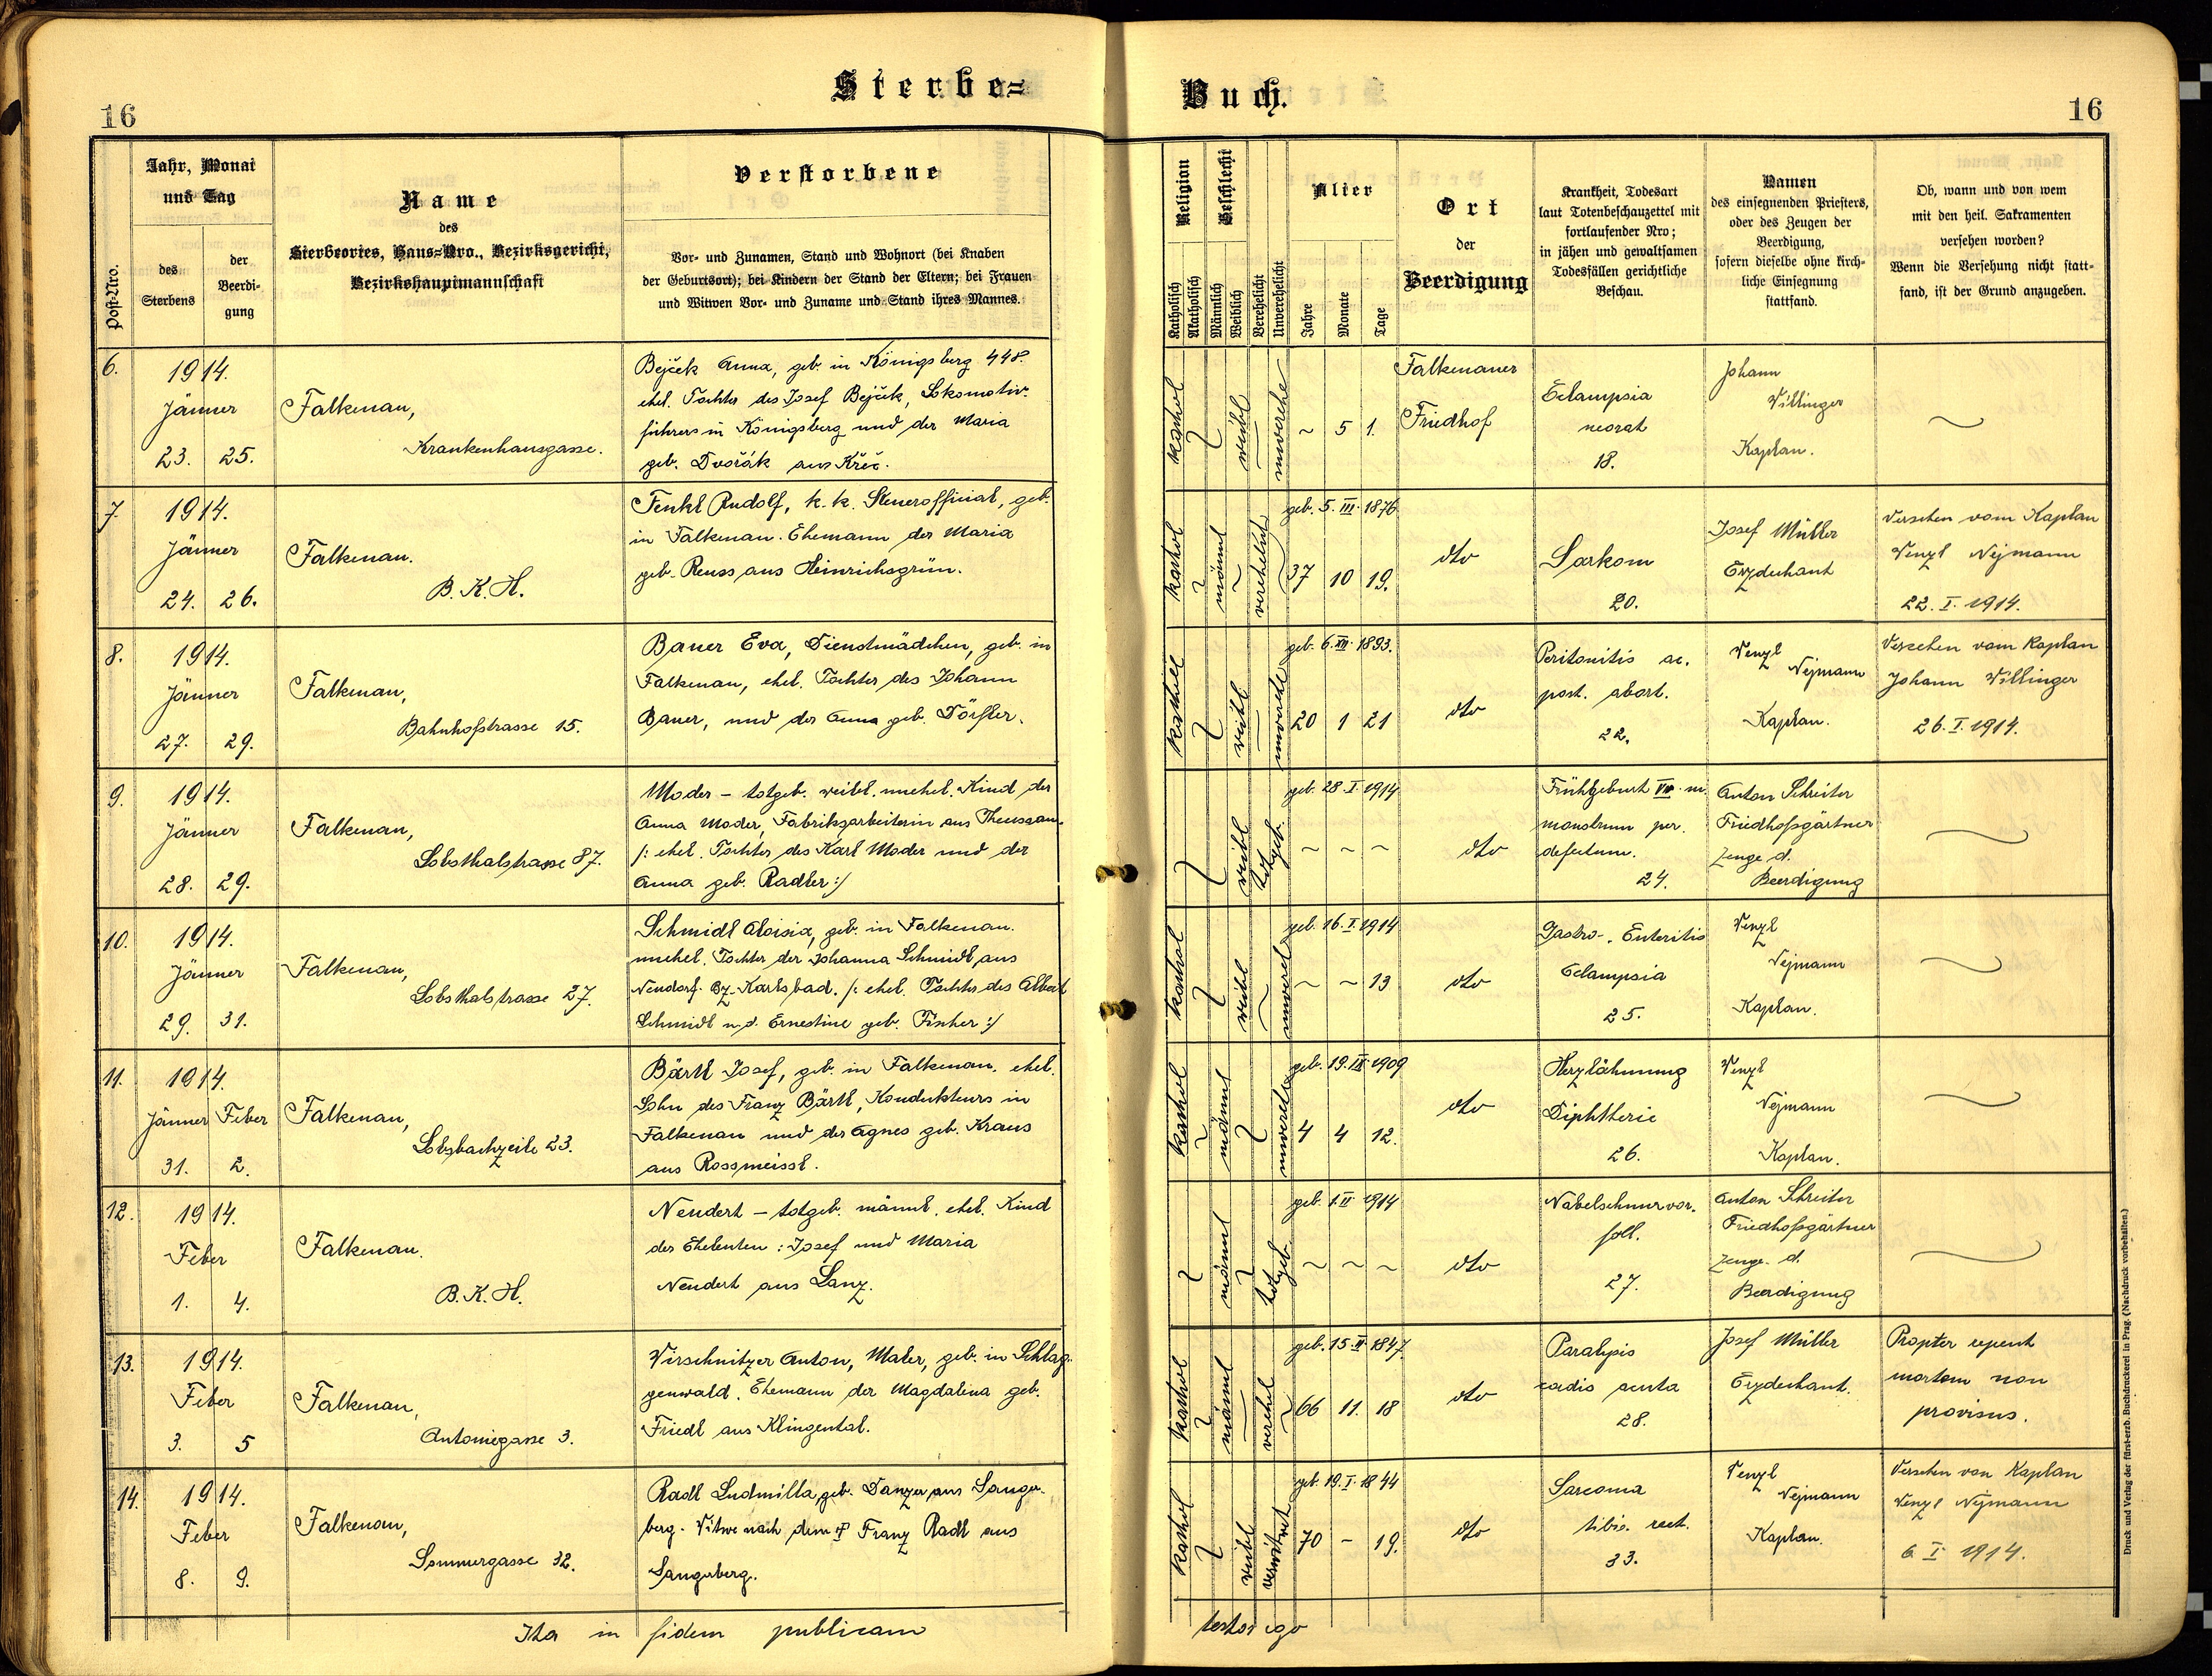 16
Sterbe=
Buch.
16
Post-Nro.
Jahr, Monat
und Tag
des
Sterbens
der
Beerdi-
gung
Name
des
Sterbeortes, Haus-Nro., Bezirksgericht,
Bezirkshauptmannschaft
Verstorbene
Vor- und Zunamen, Stand und Wohnort (bei Knaben
der Geburtsort); bei Kindern der Stand der Eltern; bei Frauen
und Witwen Vor- und Zuname und Stand ihres Mannes.
Religion
Katholisch
Akatholisch
Geschlecht
Männlich
Weiblich
Verehelicht
Unverehelicht
Alter
Jahre
Monate
Tage
Ort
der
Beerdigung
Krankheit, Todesart
laut Totenbeschauzettel mit
fortlaufender Nro;
in jähen und gewaltsamen
Todesfällen gerichtliche
Beschau.
Namen
des einsegnenden Priesters,
oder des Zeugen der
Beerdigung,
sofern dieselbe ohne kirch-
liche Einsegnung
stattfand.
Ob, wann und von wem
mit den heil. Sakramenten
versehen worden?
Wenn die Versehung nicht statt-
fand, ist der Grund anzugeben.
6.
1914.
Jänner
23. 25.
Falkenau,
Krankenhausgasse.
Bejček Anna, geb. in Königsberg 448.
ehel. Tochter des Josef Bejček, Lokomotiv-
führers in Königsberg und der Maria
geb. Dvořák aus Křeč.
kathol
weibl
unverehe
~ 5 1.
Falkenauer
Friedhof
Eclampsia
neorat
18.
Johann
Willinger
Kaplan.
~
7.
1914.
Jänner
24. 26.
Falkenau.
B. K. H.
Fenkl Rudolf, k. k. Steueroffizial, geb.
in Falkenau. Ehemann der Maria
geb. Reuss aus Heinrichsgrün.
kathol
männl
verehelicht
geb. 5. III. 1876
37 10 19.
dto
Sarkom
20.
Josef Müller
Erzdechant
Versehen vom Kaplan
Wenzl Nejmann
22. I. 1914.
8.
1914.
Jänner
27. 29.
Falkenau,
Bahnhofstrasse 15.
Bauer Eva, Dienstmädchen, geb. in
Falkenau, ehel. Tochter des Johann
Bauer, und der Anna geb. Dörfler.
weibl
geb. 6. XII. 1893.
20 1 21
dto
Peritonitis ac.
post. abort.
22.
Wenzl
Nejmann
Kaplan.
Versehen vom Kaplan
Johann Willinger
26. I. 1914.
9.
1914.
Jänner
28. 29.
Falkenau,
Lobsthalstrasse 87.
Moder – totgeb. weibl. unehel. Kind der
Anna Moder, Fabriksarbeiterin aus Theussau.
/: ehel. Tochter des Karl Moder und der
Anna geb. Radler :/
weibl
totgeb.
geb. 28. I. 1914
~ ~ ~
dto
Frühgeburt VII. m.
monstrum per.
defectum.
24.
Anton Schreiter
Friedhofsgärtner
Zeuge d.
Beerdigung
~
10.
1914.
Jänner
29. 31.
Falkenau,
Lobsthalstrasse 27.
Schmidl Aloisia, geb. in Falkenau.
unehel. Tochter der Johanna Schmidl aus
Neudorf. Bz. Karlsbad. /: ehel. Tochter des Albert
Schmidl u. d. Ernestine geb. Fischer :/
kathol
weibl
unverel
geb. 16. I. 1914
~ ~ 13
dto
Gastro-. Enteritis
Eclampsia
25.
Wenzl
Nejmann
Kaplan.
~
11.
1914.
Jänner Feber
31. 2.
Falkenau,
Lobsbachzeile 23.
Bärtl Josef, geb. in Falkenau. ehel.
Sohn des Franz Bärtl, Kondukteurs in
Falkenau und der Agnes geb. Kraus
aus Rossmeissl.
kathol
männl
geb. 19. IX. 1909
4 4 12.
dto
Herzlähmung
Diphtherie
26.
Wenzl
Nejmann
Kaplan.
~
12.
1914.
Feber
1. 4.
Falkenau.
B. K. H.
Neudert – totgeb. männl. ehel. Kind
der Eheleuten: Josef und Maria
Neudert aus Lanz.
männl
totgeb.
geb. 1. II 1914
~ ~ ~
dto
Nabelschnurvor.
fall.
27.
Anton Schreiter
Friedhofsgärtner
Zeuge. d.
Beerdigung
~
13.
1914.
Feber
3. 5
Falkenau,
Antoniegasse 3.
Wirschnitzer Anton, Maler, geb. in Schlag-
genwald. Ehemann der Magdalena geb.
Friedl aus Klingental.
kathol
männl
verehel
geb. 15. II. 1847.
66 11. 18
dto
Paralysis
cordis acuta
28.
Josef Müller
Erzdechant.
Propter repent
mortem non
provisus.
14.
1914.
Feber
8. 9.
Falkenau,
Sommergasse 32.
Radl Ludmilla, geb. Danzer aus Sanger-
berg. Witwe nach dem † Franz Radl aus
Sangerberg.
kathol
weibl
verwitwet
geb. 19. I. 1844
70 – 19.
dto
Sarcoma
tibio. rect.
33.
Wenzl
Nejmann
Kaplan.
Versehen von Kaplan
Wenzl Nejmann
6. I. 1914.
Ita in fidem publicam
testor ego
Druck und Verlag der fürst-erzb. Buchdruckerei in Prag. (Nachdruck vorbehalten.)